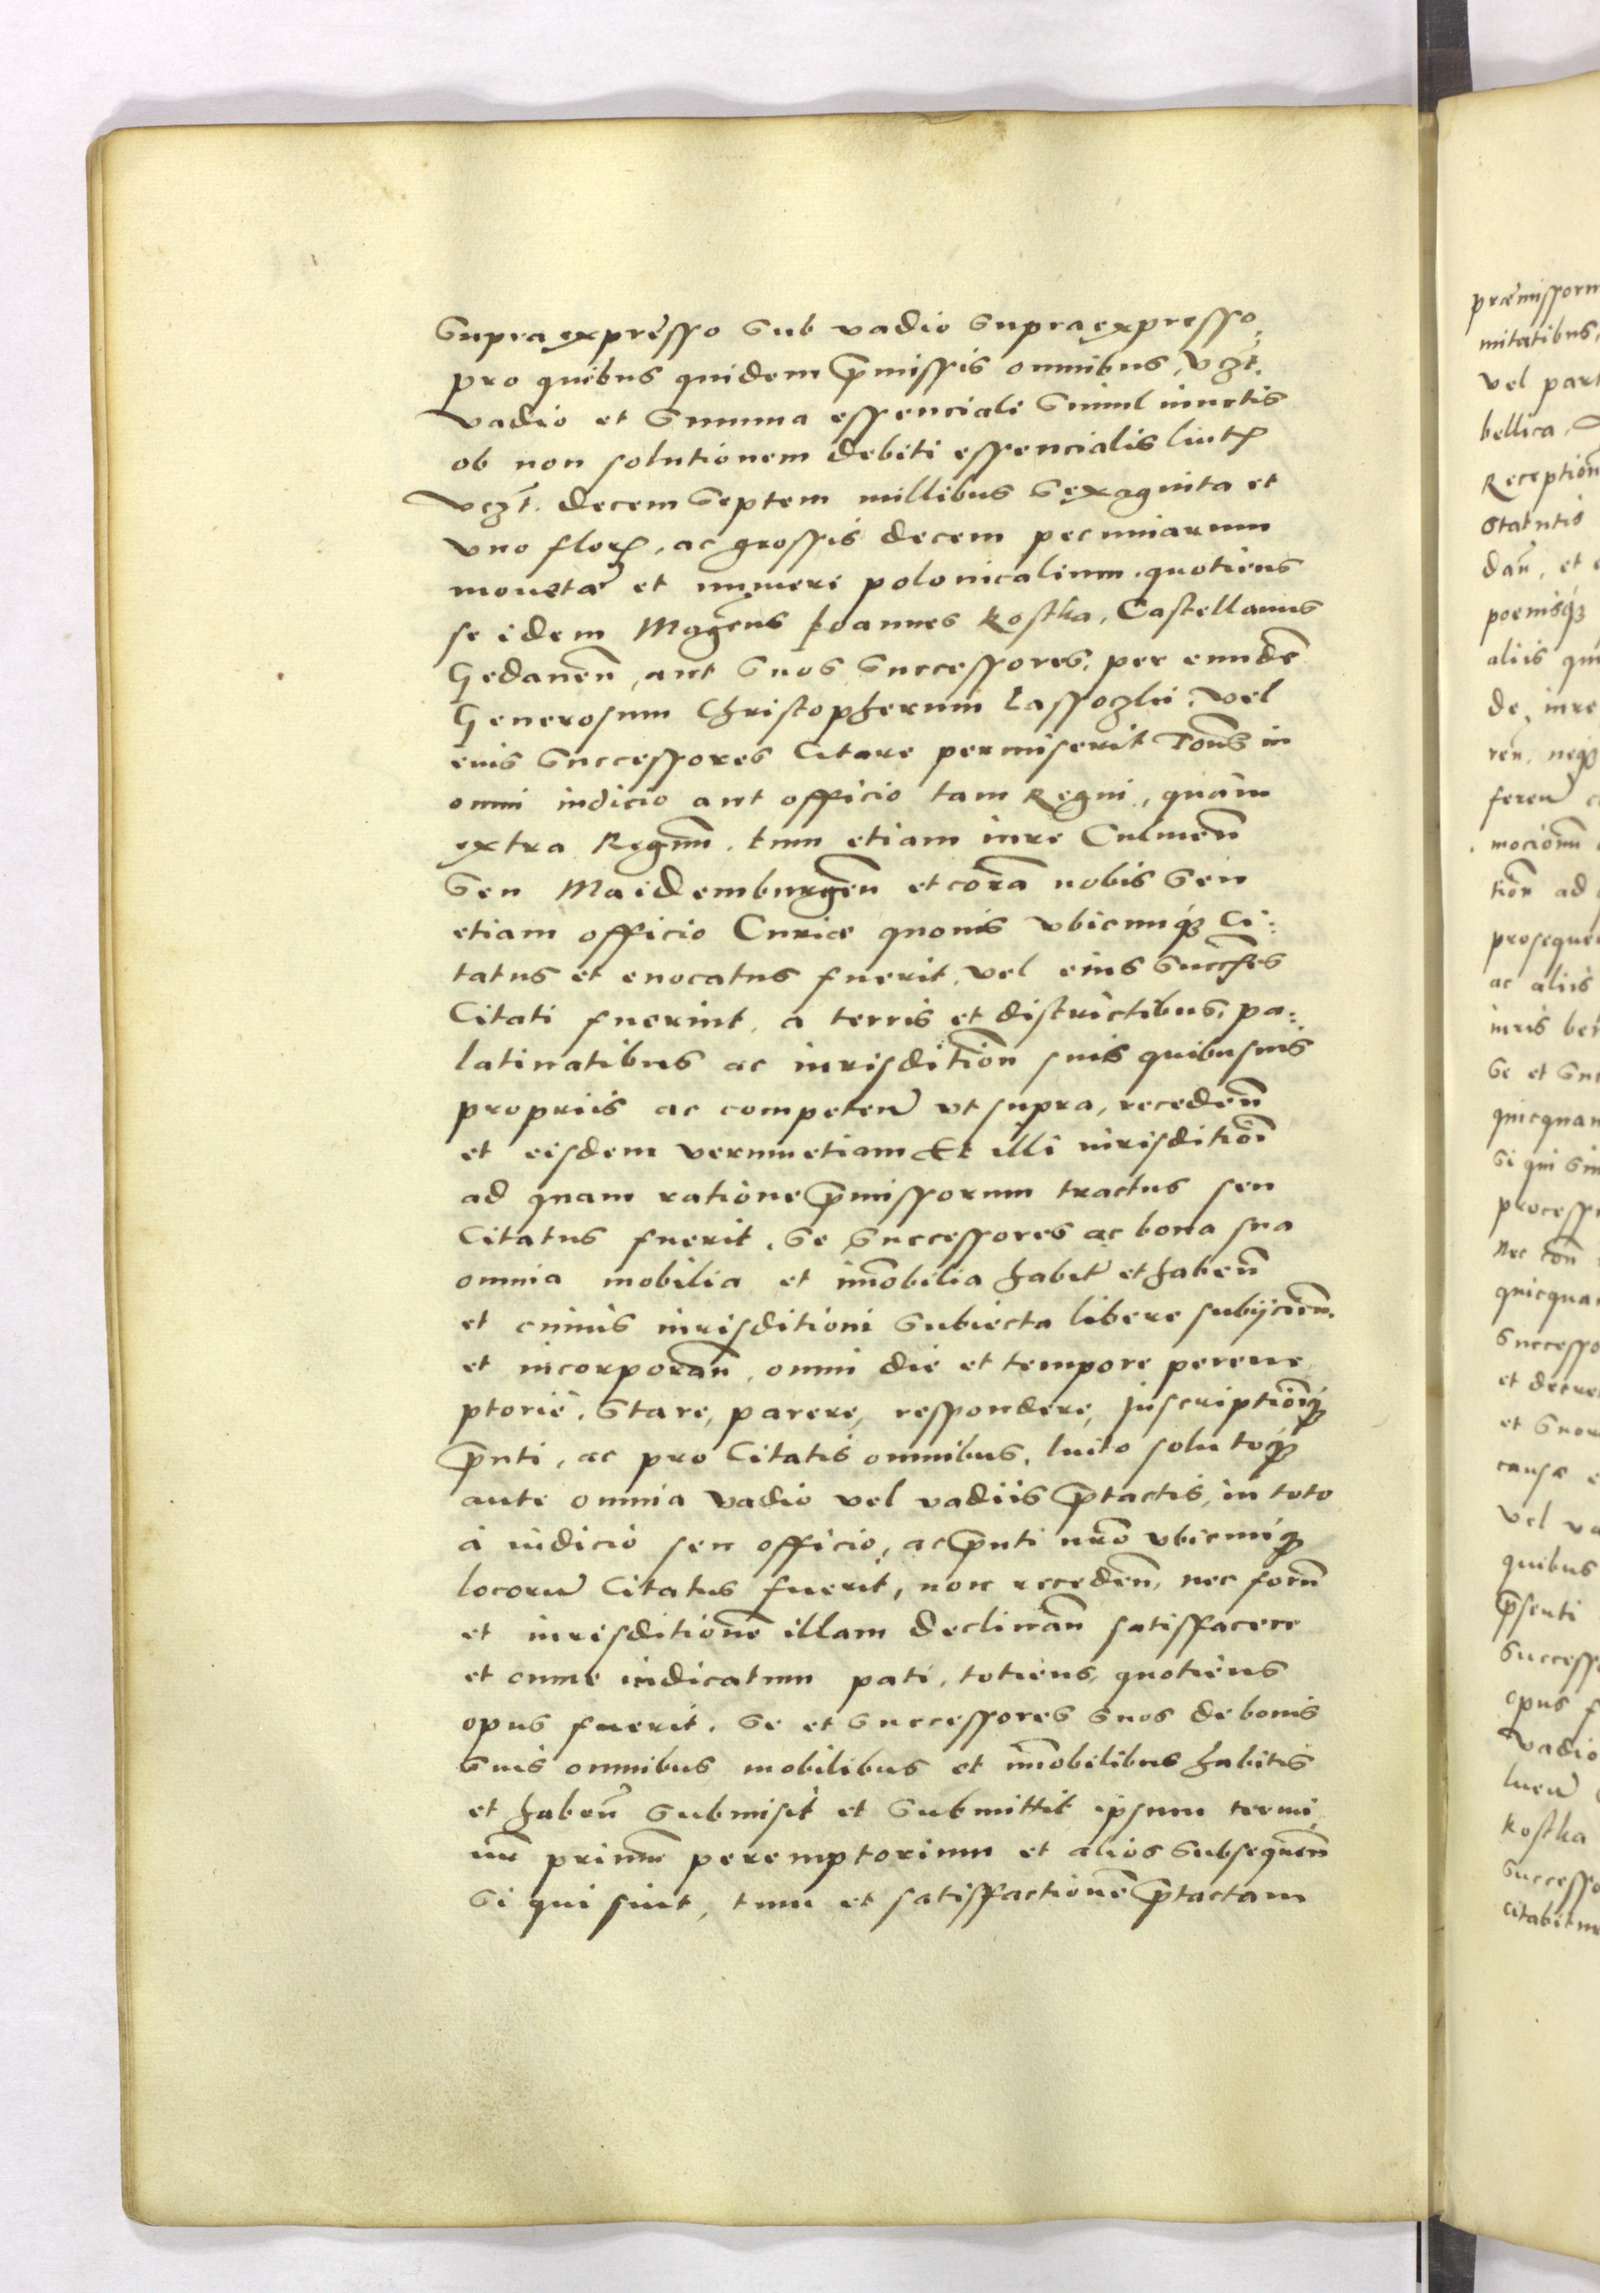 supraexpresso sub vadio supraexpresso,
pro quibus quidem p̄missis omnibus, vczt.
vadio et summa essenciali simul iunctis
ob non solutionem debiti essencialis
vczt. decem septem millibus sexaginta et
vno flor, ac grossis decem pecuniarum
monetæ et numeri polonicalium. quotiens
se idem Magcus Joannes Kostka, Castellanus
Gedanen̄, aut suos successores, per eundē
Generosum Christopherum Lassozki, vel
eius successores Citare permiserit in
omni iudicio aut officio tam Regni, quàm
extra Regnū. tum etiam iure Culmen̄
seu Maidemburgen̄ et corā nobis seu
etiam officio Curiæ quouis vbicunq̃ Ci:
tatus et euocatus fuerit, vel eius succes̄
Citati fuerint, a terris et districtibus, pa:
latinatibus ac iurisdition̄ suis quibusuis
propriis ac competen̄ vt supra, receden̄
et eisdem verumetiam et illi iurisditioī
ad quam ratione p̄missorum tractus seu
Citatus fuerit. se successores ac bona sua
omnia mobilia et im̄obilia habit̄ et haben̄
et cuiuis iurisditioni subiecta libere subijcien̄.
et incorporan̄, omni die et tempore perem
ptoriè. stare, parere, respondere, Inscriptioniq̃
p̄nti, ac pro Citatis omnibus, luito solutoq̃
ante omnia vadio vel vadiis p̄tactis, in toto
à iudicio seu officio, ac p̄nti nr̄o vbicunq̃
locorū Citatus fuerit, non receden̄, nec forū
et iurisditionē illam declinan̄ satisfacere
et omne iudicatum pati, totiens, quotiens
opus fuerit. se et successores suos de bonis
suis omnibus mobilibus et im̄obilibus habitis
et haben̄ submisit et submittit ipsum termi
nū primū peremptorium et alios subsequen̄
si qui sint, tum et satisfactionē p̄tactam
præmissorum
mitatibus,
vel part
bellica,
Reception
Statutis
dan̄, et
poenisq̃
aliis qui
de, iure
ren̄, neq̃
feren̄
mocionū
tion̄ ad
proseque
ac aliis
iuris ben
se et suc
quicquam
si qui sin
processu
nec con̄
quicquam
successo
et decre
et suor
causæ
vel va
quibus
p̄senti
successo
opus f
vadio
luen̄
Kostka
successo
citabitur